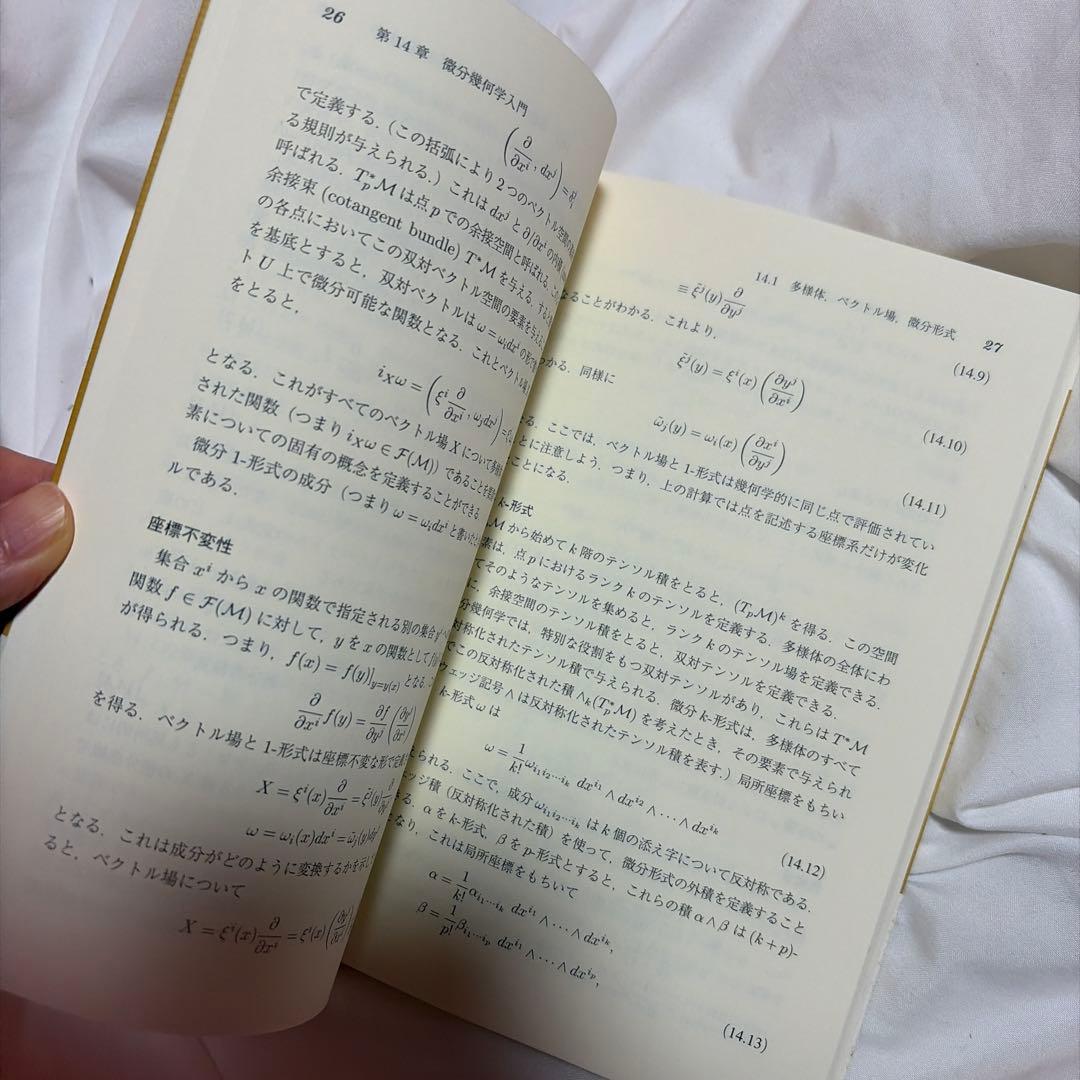 26
第14章 微分幾何学入門
(∂/∂xⁱ, dxʲ) = δⁱⱼ
で定義する.(この括弧により2つのベクトル空間の
る規則が与えられる.)これは dxʲ と ∂/∂xⁱ の内積
呼ばれる. T*ₚM は点 p での余接空間と呼ばれる.
余接束 (cotangent bundle) T*M を与える.
の各点においてこの双対ベクトル空間の要素を与え
を基底とすると, 双対ベクトルは ω = ωᵢdxⁱ の形で
ト U 上で微分可能な関数となる. これとベクトル場
をとると,
i_Xω = (ξⁱ ∂/∂xⁱ, ωⱼdxʲ) =
となる. これがすべてのベクトル場 X について
された関数 (つまり i_Xω ∈ F(M)) であることを
素についての固有の概念を定義することができる.
微分 1-形式の成分 (つまり ω = ωᵢdxⁱ と書いた
ルである.
座標不変性
集合 xⁱ から x の関数で指定される別の集合 yʲ
関数 f ∈ F(M) に対して, y を x の関数として
が得られる. つまり, f(x) = f(y)|_{y=y(x)} となる.
∂/∂xⁱ f(y) = ∂f/∂yʲ (∂yʲ/∂xⁱ)
を得る. ベクトル場と 1-形式は座標不変な形で定
X = ξⁱ(x) ∂/∂xⁱ = ξ̃ʲ(y) ∂
ω = ωᵢ(x)dxⁱ = ω̃ⱼ(y)dyʲ
となる. これは成分がどのように変換するかを示し
ると, ベクトル場について
X = ξⁱ(x) ∂/∂xⁱ = ξⁱ(x) (∂yʲ/∂xⁱ)
14.1 多様体, ベクトル場, 微分形式 27
≡ ξ̃ʲ(y) ∂/∂yʲ (14.9)
なることがわかる. これより,
ξ̃ʲ(y) = ξⁱ(x) (∂yʲ/∂xⁱ) (14.10)
かる. 同様に
ω̃ⱼ(y) = ωᵢ(x) (∂xⁱ/∂yʲ) (14.11)
る. ここでは, ベクトル場と 1-形式は幾何学的に同じ点で評価されてい
とに注意しよう. つまり, 上の計算では点を記述する座標系だけが変化
ことになる.
k-形式
M から始めて k 階のテンソル積をとると, (TₚM)ᵏ を得る. この空間
素は, 点 p におけるランク k のテンソルを定義する. 多様体の全体にわ
てそのようなテンソルを集めると, ランク k のテンソル場を定義できる.
に, 余接空間のテンソル積をとると, 双対テンソルを定義できる.
分幾何学では, 特別な役割をもつ双対テンソルがあり, これらは T*M
対称化されたテンソル積で与えられる. 微分 k-形式は, 多様体のすべて
でこの反対称化された積 ∧ₖ(T*ₚM) を考えたとき, その要素で与えられ
ウェッジ記号 ∧ は反対称化されたテンソル積を表す.)局所座標をもちい
k-形式 ω は
ω = 1/k! ω_{i₁i₂…iₖ} dx^{i₁} ∧ dx^{i₂} ∧ … ∧ dx^{iₖ} (14.12)
えられる. ここで, 成分 ω_{i₁i₂…iₖ} は k 個の添え字について反対称である.
ェッジ積 (反対称化された積) を使って, 微分形式の外積を定義すること
きる. α を k-形式, β を p-形式とすると, これらの積 α∧β は (k+p)-
なり, これは局所座標をもちいて
α = 1/k! α_{i₁…iₖ} dx^{i₁} ∧ … ∧ dx^{iₖ},
β = 1/p! β_{i₁…iₚ} dx^{i₁} ∧ … ∧ dx^{iₚ},
(14.13)